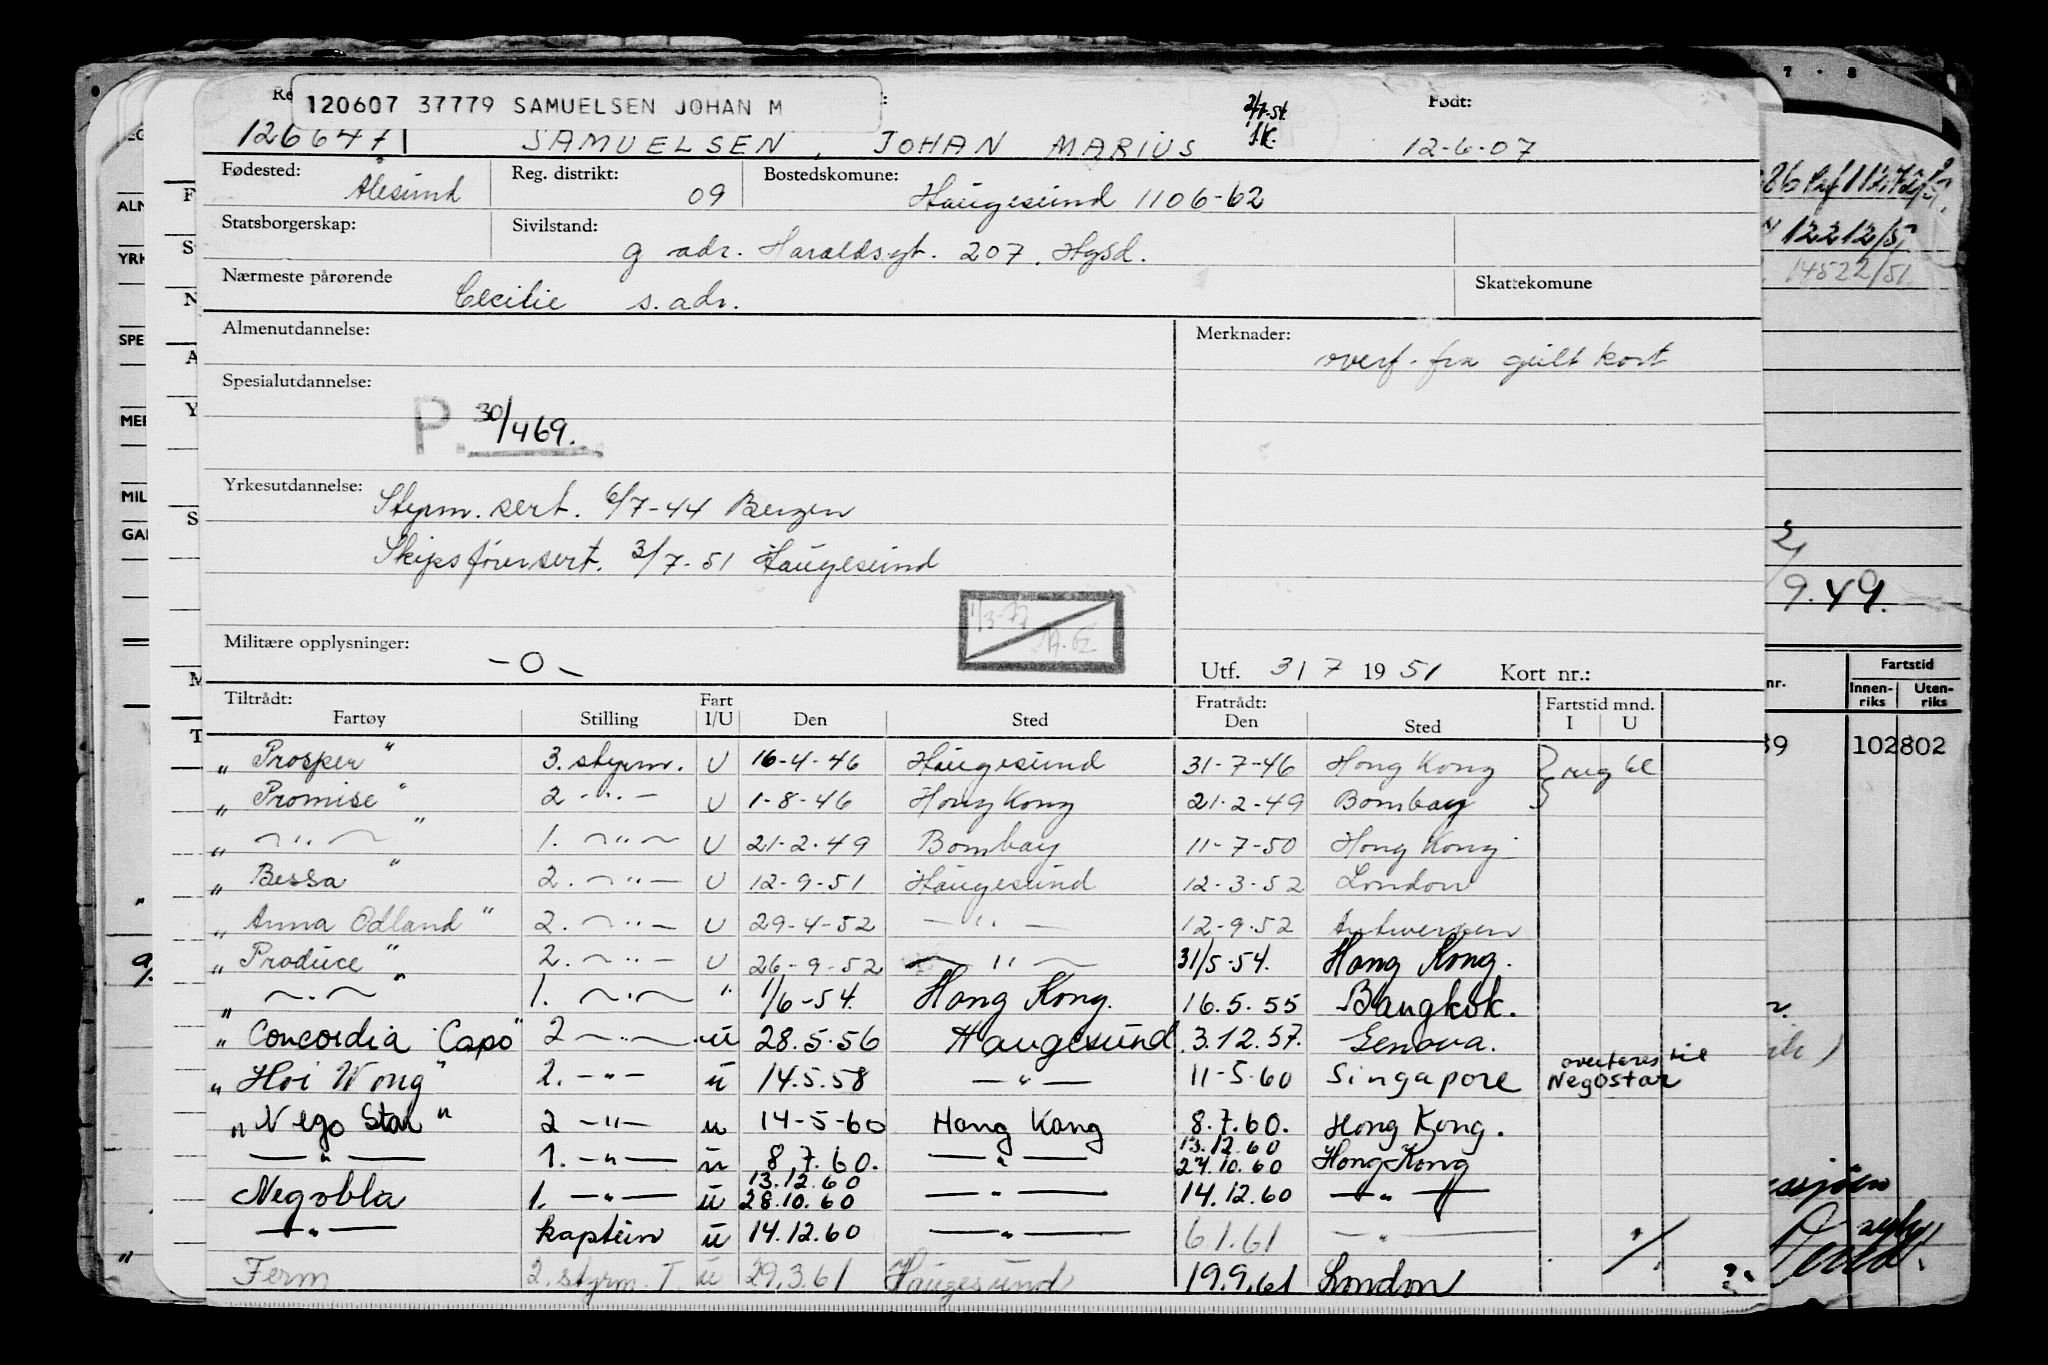 120607 37779 SAMUELSEN JOHAN M
Født:
126647/1 SAMUELSEN, JOHAN MARIUS 12-6-07
Fødested: Ålesund Reg. distrikt: 09 Bostedskomune: Haugesund 1106-62
Statsborgerskap: Sivilstand: g adr. Haraldsgt. 207. Hgsd.
Nærmeste pårørende Cecilie s. adr. Skattekomune
Almenutdannelse: Merknader: overf. fra gult kort
Spesialutdannelse:
P. 30/469.
Yrkesutdannelse: Styrm. sert. 6/7-44 Bergen
Skipsførersert. 3/7-51 Haugesund
Militære opplysninger: -0-
Utf. 31 7 1951 Kort nr.:
Tiltrådt: Fart Fratrådt: Fartstid mnd.
Fartøy Stilling I/U Den Sted Den Sted I U
"Prosper" 3. styrm. U 16-4-46 Haugesund 31-7-46 Hong Kong
"Promise" 2 -"- U 1-8-46 Hong Kong 21-2-49 Bombay
" -"- " 1. -"- U 21-2-49 Bombay 11-7-50 Hong Kong
"Bessa" 2. -"- U 12-9-51 Haugesund 12-3-52 London
"Anna Odland" 2. -"- U 29-4-52 -"- 12-9-52 Antwerpen
"Produce" 2. -"- U 26-9-52 -"- 31/5-54. Hong Kong.
" -"- " 1. -"- " 1/6-54. Hong Kong. 16.5.55 Bangkok.
"Concordia Capo" 2 -"- u 28.5.56 Haugesund 3.12.57. Genova.
"Hoi Wong" 2. -"- u 14.5.58 -"- 11-5-60 Singapore overføres til Negostar
"Nego Star" 2 -"- u 14-5-60 Hong Kong 8.7.60. Hong Kong.
-"- 1. -"- u 8.7.60. -"- 13.12.60 27.10.60 Hong Kong
Negobla 1. -"- u 13.12.60 28.10.60 -"- 14.12.60 -"-
-"- kaptein u 14.12.60 -"- 6.1.61 -"-
Ferm 2. styrm. I u 29.3.61 Haugesund 19.9.61 London
ALN
YRK
SPE
MER
MIL
GAR
12212/5
14522/51.
9.49.
nr. Fartstid
Innen-riks Uten-riks
39 102 802